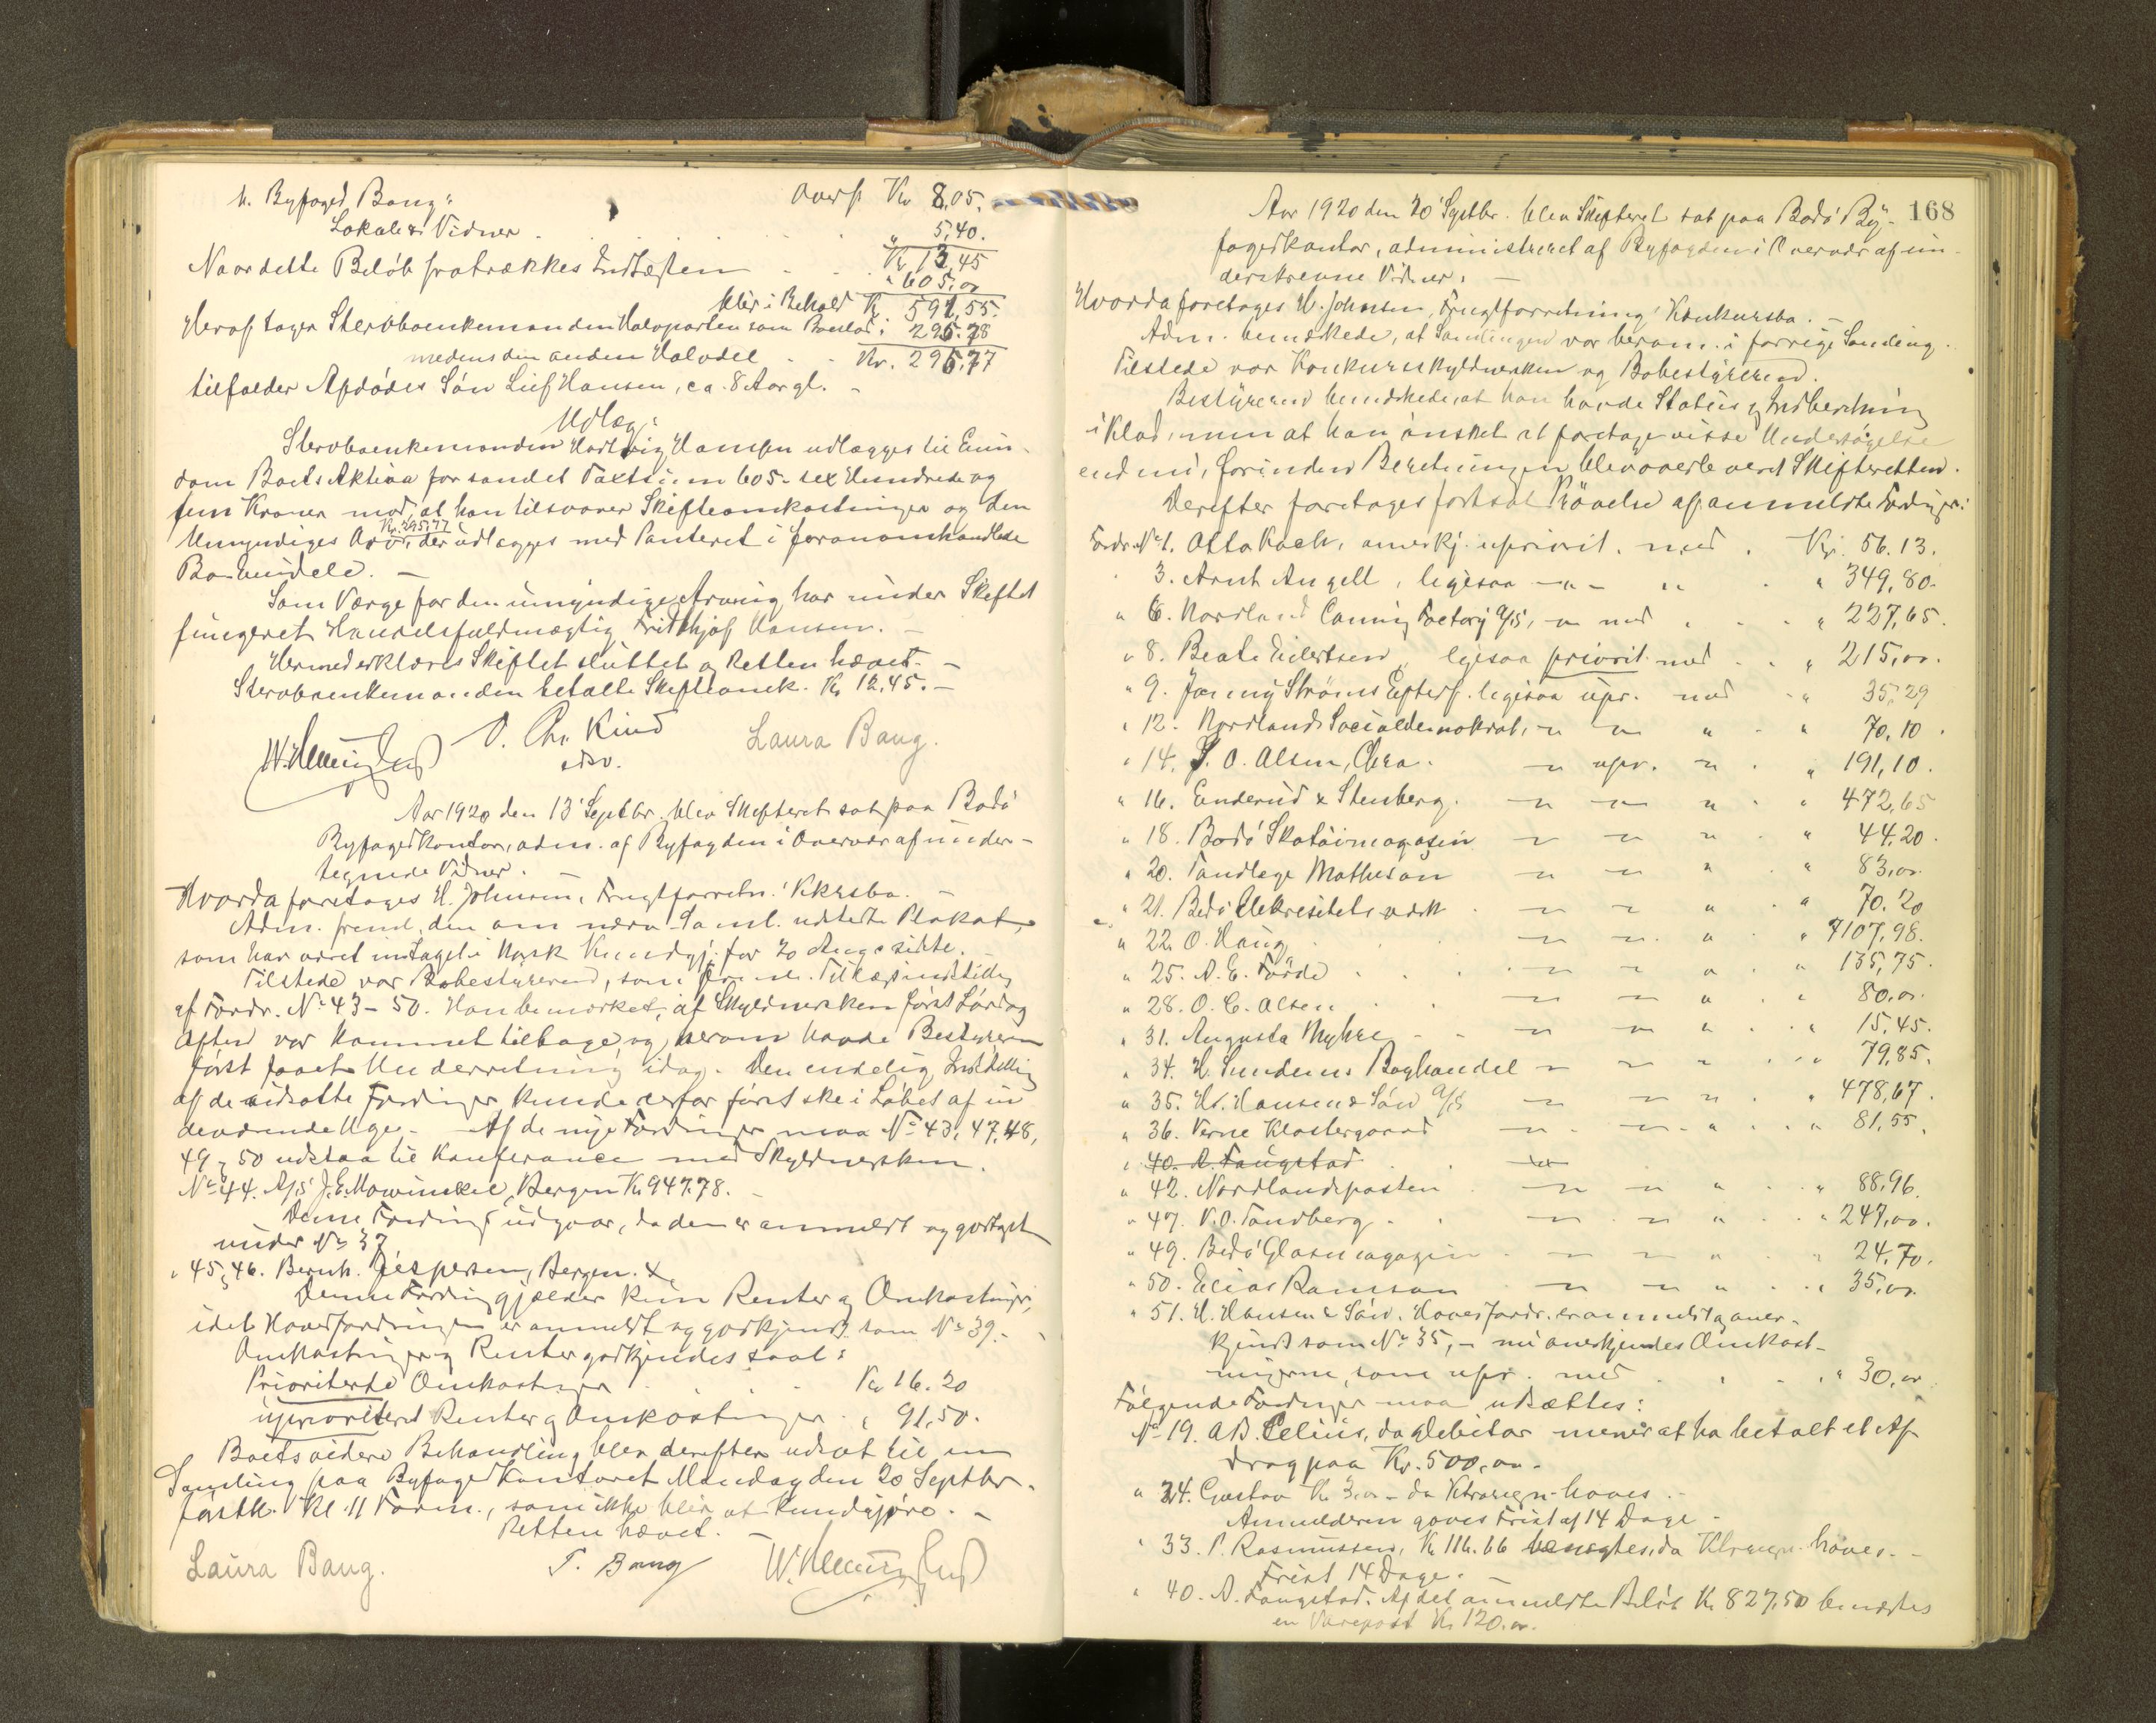 h. Byfoged Bang:
Overf. Kr 8,05.
Lokale & Vidner . . . " 5,40.
Kr 13,45
Naar dette Beløb fratrækkes Indtægten . . " 605,00
blir i Behold Kr 591,55.
Heraf tager Sterbboenkemanden Halvparten som Boeslod: 295.78
medens den anden Halvdel . . Kr. 295,77
tilfalder Afdødes Søn Leif Hansen, ca. 8 Aar gl. –
Udlæg:
Sterboenkemanden Hartvig Hansen udlægges til Eien-
dom Boets Aktiva for samlet Taxtsum 605 – sex Hundrede og
fem Kroner mod, at han tilsvarer Skifteomkostninger og den
Umyndiges Arv, Kr. 295,77 der udlægges med Panteret i foranomhandlede
Boehmidele. –
Som Værge for den umyndige Arving har under Skiftet
fungeret Handelsfuldmægtig Fridthjof Hansen. –
Hermed erklæres Skiftet sluttet og Retten hævet. –
Sterboenkemanden betalte Skifteomk. Kr 12,45. –
O. Chr. Kind Laura Bang.
Aar 1920 den 13' Septbr. blev Skifteret sat paa Bodø
Byfogedkontor, adm. af Byfogden i Overvær af under-
tegnede Vidner. –
Hvorda foretages H. Johnsen, Frugtforretn.' Kkrsbo. –
Adm. freml. den om nærv. Saml. udstedte Plakat,
som har været indtaget i Norsk Kundgj. for 20 Aug. sidste.
Tilstede var Bobestyreren, som freml. Tillægsindstilling
af Fordr. No 43 – 50. Han bemærket, at Skyldnersken først Lørdag
Aften var kommet tilbage, og herom havde Bestyreren
først faaet Underretning idag. Den endelig Indstilling
af de udsatte Fordringer kunde derfor først ske i Løbet af in
deværende Uge. – Af de nye Fordringer maa No 43, 47, 48,
49 og 50 udstaa til Konferance med Skyldnersken.
No 44. A/S J. E. Mowinckel, Bergen Kr 947.78. –
Denne Fordring udgaar, da den er anmeldt og godtaget
under No 37
" 45 & 46. Bernh. Jespersen, Bergen.
Denne Fordring gjælder kun Renter og Omkostninger,
idet Hovedfordringen er anmeldt og godkjendt som No 39. –
Omkostninger og Renter godkjendes saal:
Prioriterte Omkostninger . . . Kr 16.20
uprioriteret Renter og Omkostninger . " 91,50.
Boets videre Behandling blev derefter udsat til en
Samling paa Byfogedkontoret Mandag den 20 Septbr.
førstk. Kl. 11 Form., som ikke blir at kundgjøre. –
Retten hævet. –
Laura Bang. T. Bang
168
Aar 1920 den 20' Septbr. blev Skifteret sat paa Bodø By-
fogedkontor, administreret af Byfogden i Overvær af un-
derskrevne Vidner. –
Hvorda foretages H. Johnsen, Frugtforretning' Konkursbo. –
Adm. bemærkede, at Samlingen var beram. i forrige Samling.
Tilstede var Konkursskyldnersken og Bobestyreren.
Bestyreren bemærkede, at han havde Status og Indberetning
i Klad, men at han ønsket at foretage visse Undersøgelser
endnu, forinden Beretningen blev overleveret Skifteretten.
Derefter foretages fortsat Prøvelse af anmeldte Fordringer:
Fordr. No 1. Otto Koch, anerkj. upriorit. med . Kr. 56.13.
" 3. Arnt Angell, ligesaa – " – " . " 349,80.
" 6. Nordland Canning Factory A/S, – " med . . " 227,65.
" 8. Beate Eilertsen, ligesaa priorit. med . . " 215,00.
" 9. Jonny Strøms Efterf. ligesaa upr. med " 35,29
" 12. Nordlands Socialdemokrat, – " – " " " 70,10.
" 14. S. O. Alsen, Chra. – " upr. " . " 191,10.
" 16. Enderud & Stenberg. – " – " " . " 472,65
" 18. Bodø Skotøimagasin – " – " " " 44,20.
" 20. Tandlæge Mathesen – " – " " " 83,00.
" 21. Bodø Elektricitetsværk . – " – " " . " 70.20
" 22. O. Haug . – " – " " . " 7107,98.
" 25. A. E. Førde . . . – " – " " . " 135,75.
" 28. O. C. Alsen . . – " – " " . " 80,00.
" 31. Augusta Myhre – – " – " " . " 15,45.
" 34. H. Sundems Boghandel – " – " " . . " 79,85.
" 35. Hr. Hansen & Søn A/S – " – " " . " 478,67.
" 36. Verne Klostergaard – " – " " . . " 81,55.
" 40. A. Faugstad
" 42. Nordlandsposten – " – " " . . " 88,96.
" 47. V. O. Tandberg . . – " – " " . . " 247,00.
" 49. Bodø Glasmagazin . – " – " " . " 24,70.
" 50. Elias Ramson – " – " " . . " 35,00.
" 51. H. Hansen & Søn. Hovedfordr. er anmeldt og aner-
kjendt som No 35, – nu anerkjendes Omkost-
ningerne, som upr. med . . . " 30,00
Følgende Fordringer maa udsættes:
No 19. A B. Celius, da Debitor mener at ha betalt et Af-
drag paa Kr. 500,00.
" 24. Gustav Kr 3,00 – da Ktraregn. haves. –
Anmelderen gaves Frist af 14 Dage –
" 33. P. Rasmussen, Kr 116.66 benegtes, da Ktraregn. haves. –
Frist 14 Dage. –
" 40. A. Faugstad. Af det anmeldte Beløb Kr 827,50 benegtes
en Varepost Kr 120.00.